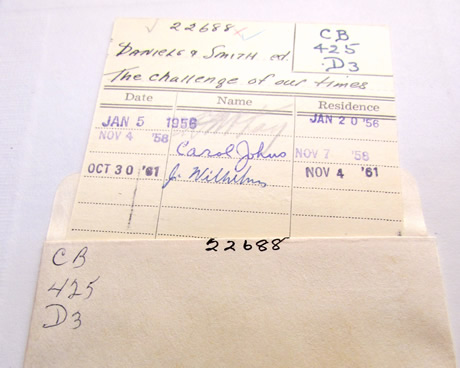 22688
CB
425
D3
Daniels & Smith ed.
The challenge of our times
Date Name Residence
JAN 5 1956 JAN 20 '56
NOV 4 '58 Carol Johns NOV 7 '58
OCT 30 '61 J. Wilhelms NOV 4 '61
22688
CB
425
D3